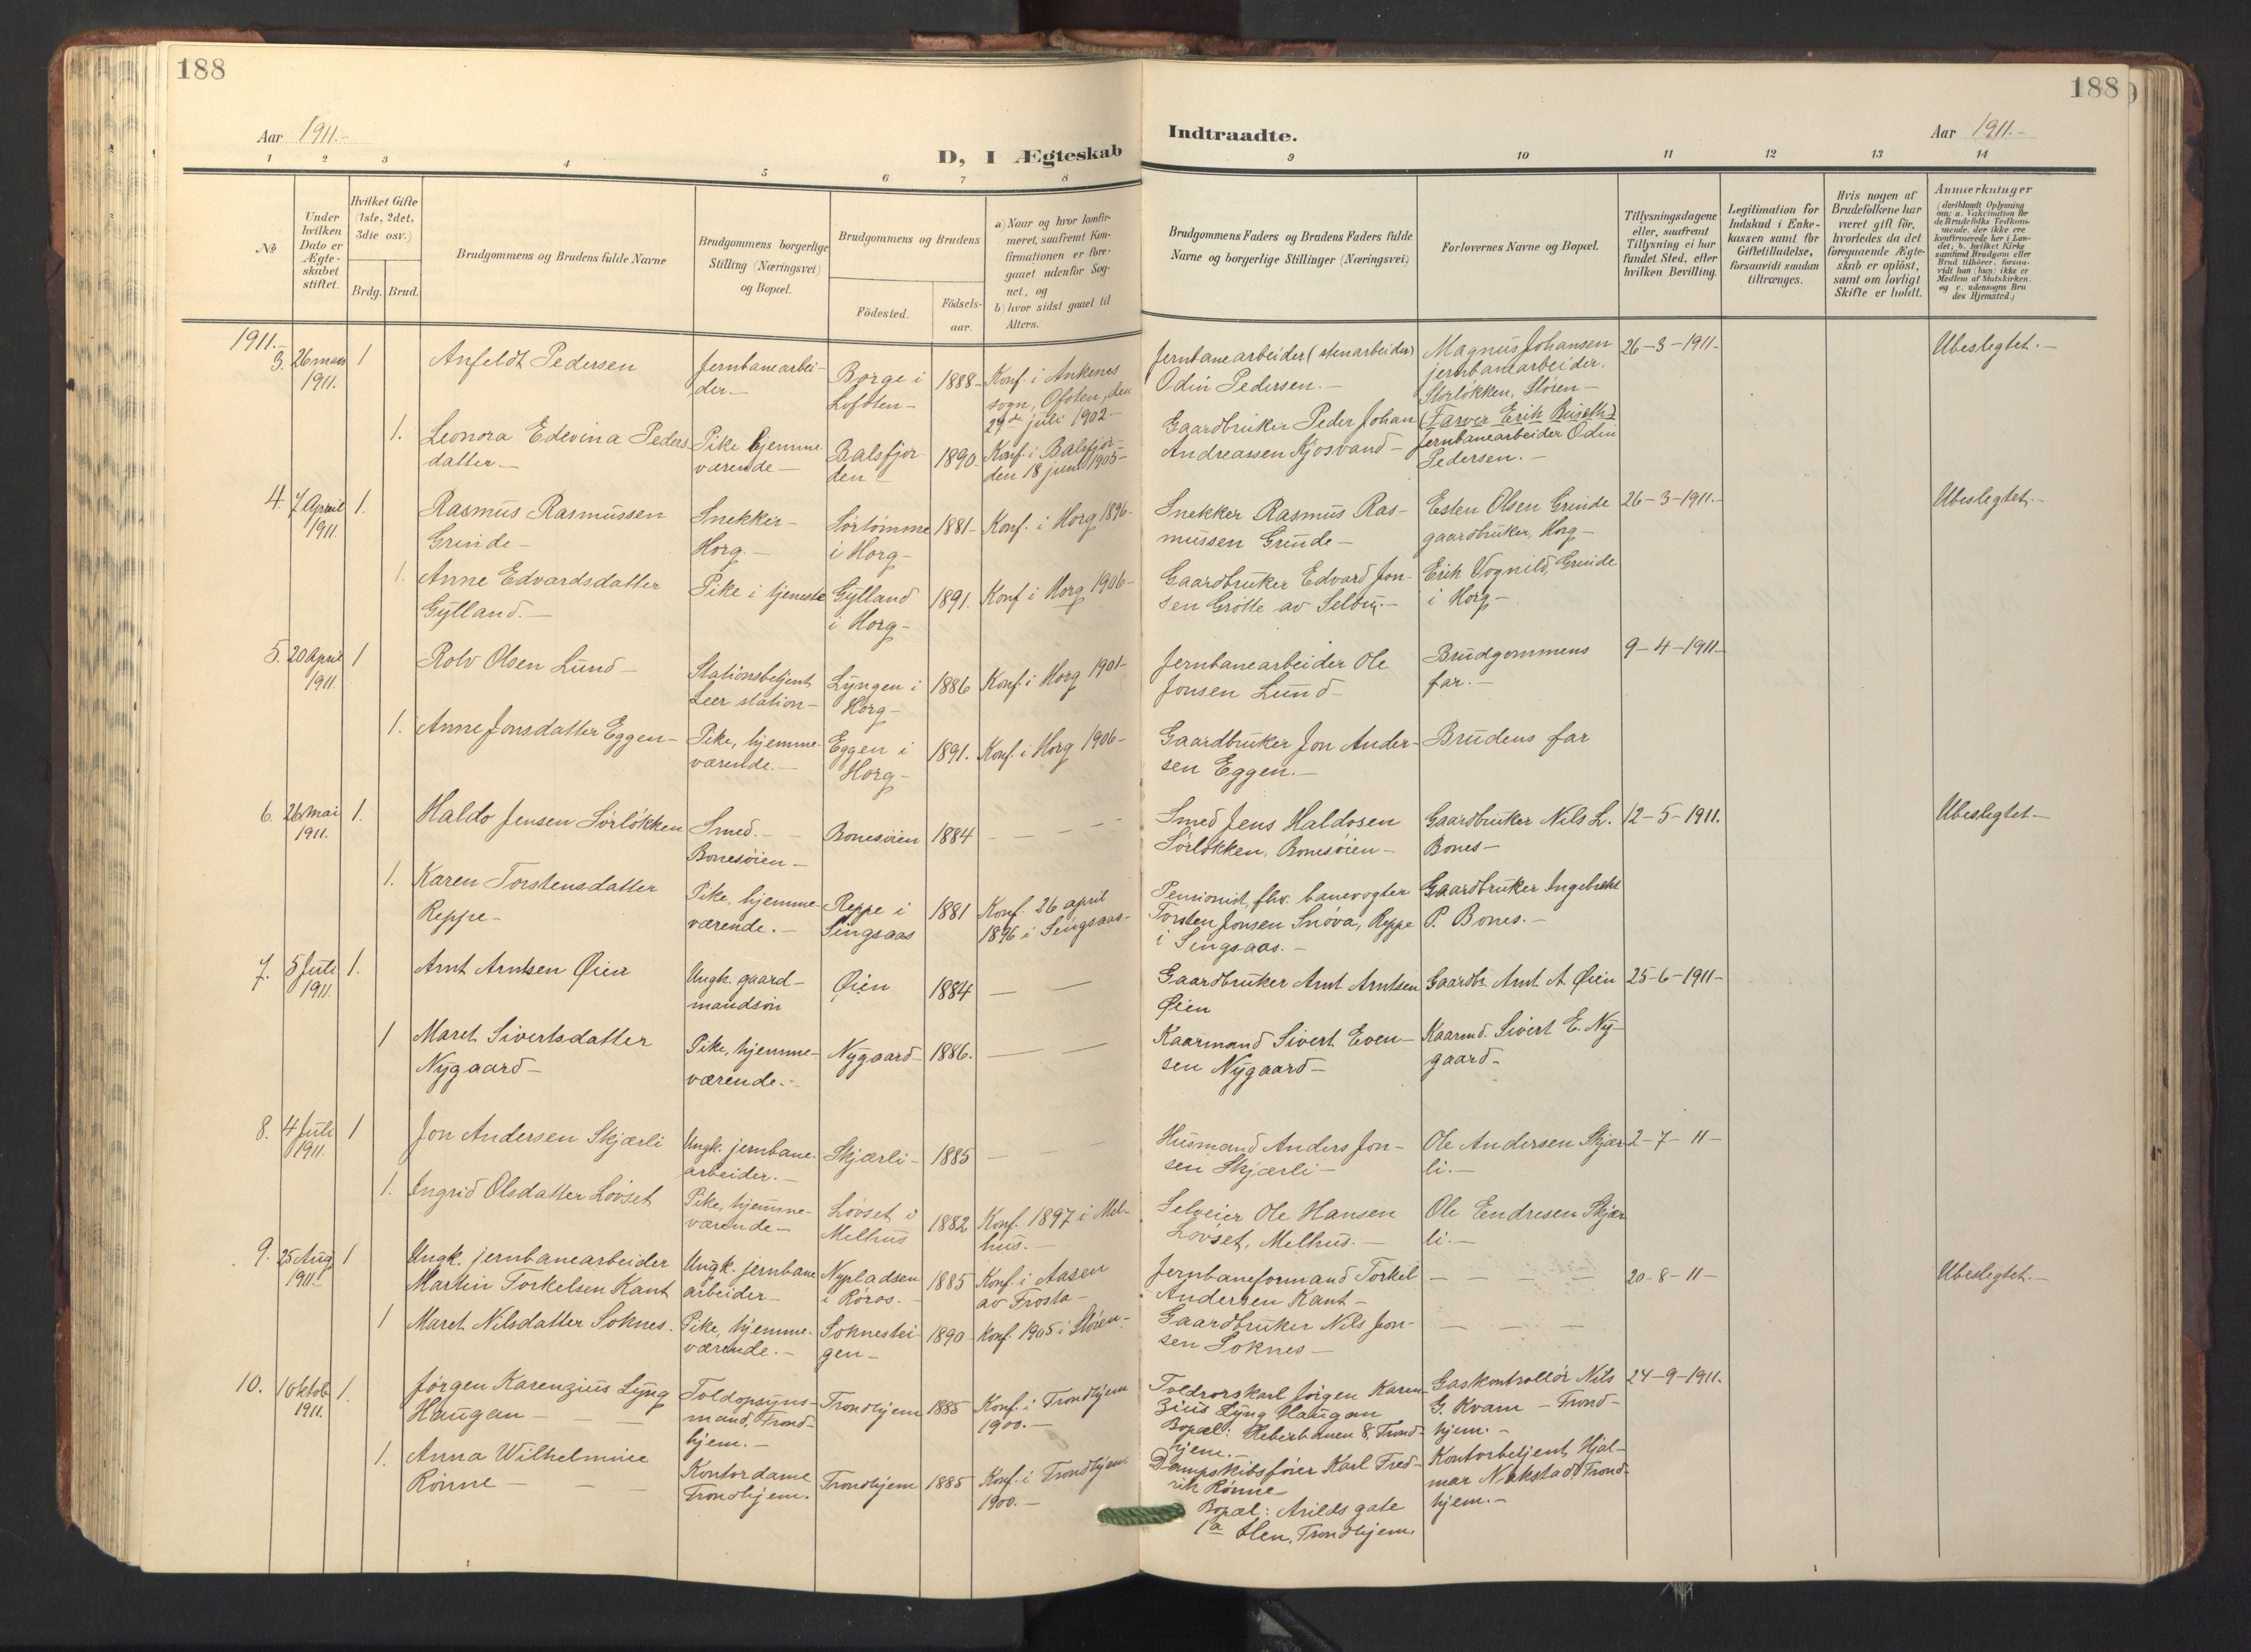 188
188
Aar 1911.-
D, I Ægteskab
Indtraadte.
Aar 1911.-
1 2 3 4 5 6 7 8 9 10 11 12 13 14
No
Under hvilken Dato er Ægteskabet stiftet.
Hvilket Gifte (1ste, 2det, 3die osv.)
Brdg. Brud.
Brudgommens og Brudens fulde Navne
Brudgommens borgerlige Stilling (Næringsvei) og Bopæl.
Brudgommens og Brudens
Födested.
Födsels-aar.
a) Naar og hvor konfirmeret, saafremt Konfirmationen er foregaaet udenfor Sognet, og
b) hvor sidst gaaet til Alters.
Brudgommens Faders og Brudens Faders fulde Navne og borgerlige Stillinger (Næringsvei)
Forlovernes Navne og Bopæl.
Tillysningsdagene eller, saafremt Tillysning ei har fundet Sted, efter hvilken Bevilling.
Legitimation for Indskud i Enkekassen samt for Giftetilladelse, forsaavidt saadan tiltrænges.
Hvis nogen af Brudefolkene har været gift för, hvorledes da det foregaaende Ægteskab er oplöst, samt om lovligt Skifte er holdt.
Anmærkninger (deriblandt Oplysning om: a. Vakcination for de Brudefolks Vedkommende, der ikke ere konfirmerede her i Landet; b. hvilket Kirkesamfund Brudgom eller Brud tilhører, forsaavidt han (hun) ikke er Medlem af Statskirken, og c. udensogns Brudes Hjemsted.)
1911.-
3. 26 mars 1911. 1 Anfeldt Pedersen
Jernbanearbeider.-
Borge i Lofoten-
1888-
Konf. i Ankenes sogn, Ofoten, den 27de juli 1902.-
Jernbanearbeider (stenarbeider) Odin Pedersen.-
Magnus Johansen jernbanearbeider, Storløkken, Støren-
26-3-1911.-
Ubeslegtet.-
1. Leonora Edevina Pedersdatter-
Pike hjemmeværende-
Balsfjorden-
1890-
Konf. i Balsfjor- den 18 juni 1905-
Gaardbruker Peder Johan Andreassen Kjosvand-
(Farver Erik Buseth) jernbanearbeider Odin Pedersen.-
4. 7 April 1911. 1. Rasmus Rasmussen Grinde-
Snekker- Horg.-
Sørtømme i Horg-
1881-
Konf. i Horg 1896-
Snekker Rasmus Rasmussen Grinde-
Esten Olsen Grinde gaardbruker, Horg-
26-3-1911.-
Ubeslegtet.-
1. Anne Edvardsdatter Gylland.-
Pike i tjeneste
Gylland i Horg-
1891.
Konf i Horg 1906-
Gaardbruker Edvard Jonsen Grøtte av Selbu.-
Erik Vognild, Grinde i Horg-
5. 20 April 1911. 1 Rolv Olsen Lund-
Stationsbetjent Leer station-
Lyngen i Horg-
1886
Konf. i Horg 1901-
Jernbanearbeider Ole Jonsen Lund-
Brudgommens far.-
9-4-1911-
1. Anne Jonsdatter Eggen-
Pike, hjemmeværende.-
Eggen i Horg-
1891.
Konf. i Horg 1906-
Gaardbruker Jon Andersen Eggen.-
Brudens far
6. 26 mai 1911. 1. Haldo Jensen Sørløkken
Smed.- Bonesøien-
Bonesøien
1884
- - -
Smed Jens Haldosen Sørløkken, Bonesøien-
Gaardbruker Nils L. Bones-
12-5-1911.
Ubeslegtet-
1. Karen Torstensdatter Reppe-
Pike, hjemmeværende.-
Reppe i Singsaas
1881
Konf. 26 april 1896 i Singsaas-
Pensionist, fhv. banevogter Torsten Jonsen Snøva, Reppe i Singsaas.-
Gaardbruker Ingebrikt P. Bones.-
7. 5 Juli 1911. 1. Arnt Arntsen Øien
Ungk. gaardmandsøn
Øien
1884
- -
Gaardbruker Arnt Arntsen Øien
Gaardbr. Arnt A. Øien
25-6-1911-
1 Maret Sivertsdatter Nygaard-
Pike, hjemmeværende.-
Nygaard-
1886.
- -
Kaarmand Sivert Evensen Nygaard-
Kaarmd. Sivert E. Nygaard-
8. 4 Juli 1911. 1 Jon Andersen Skjærli
Ungk. jernbanearbeider.-
Skjærli-
1885
- -
Husmand Anders Jonsen Skjærli-
Ole Andersen Skjærli.-
2-7-11-
1. Ingrid Olsdatter Løvset
Pike, hjemmeværende-
Løvset i Melhus
1882
Konf. 1897 i Melhus.-
Selveier Ole Hansen Løvset, Melhus.-
Ole Endresen Skjærli.-
9. 25 Aug 1911. 1 Ungk. jernbanearbeider Martin Torkelsen Kant
Ungk. jernbanearbeider-
Nypladsen i Røros.-
1885
Konf. i Aasen av Frosta-
Jernbaneformand Torkel Andersen Kant-
- - - -
20-8-11-
Ubeslegtet.-
1 Maret Nilsdatter Soknes.
Pike, hjemmeværende.-
Soknesteigen-
1890-
Konf. 1905 i Støren-
Gaardbruker Nils Jonsen Soknes-
- - -
10. 1 Oktob 1911. 1. Jørgen Karenzius Lyng Haugan-
Toldopsynsmand, Trondhjem.-
Trondhjem
1885
Konf. i Trondhjem 1900.-
Toldrorskarl Jørgen Karenzius Lyng Haugan Bopæl: Reberbanen 8, Trondhjem.-
Gaskontrollør Nils G. Kvam - Trondhjem.-
24-9-1911.
1. Anna Wilhelmine Rønne-
Kontordame Trondhjem.
Trondhjem
1885
Konf. i Trondhjem 1900.-
Dampskibsfører Karl Fredrik Rønne- Bopæl: Arilds gate 1a Ilen, Trondhjem.
Kontorbetjent Hjalmar Nakstad, Trondhjem.-